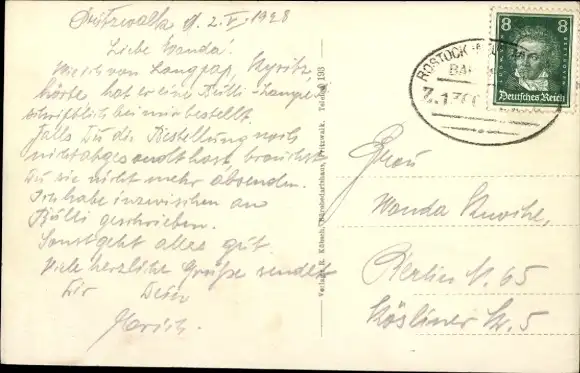 Pritzwalk d. 2. V. 1928
Liebe Wanda!
Wie ich von Langpap, Kyritz
hörte hat er eine Rulli-Lampe
schriftlich bei mir bestellt.
Falls Du die Bestellung noch
nicht abgesandt hast, brauchst
Du sie nicht mehr absenden.
Ich habe inzwischen an
Rulli geschrieben.
Sonst geht alles gut.
Viele herzliche Grüße sendet
Dir Dein
Verlag R. Kölsch, Bürobedarfshaus, Pritzwalk. Telefon 193
ROSTOCK
BA
Z.
8 8
Deutsches Reich
Frau
Wanda
Berlin N. 65
Kösliner Str. 5